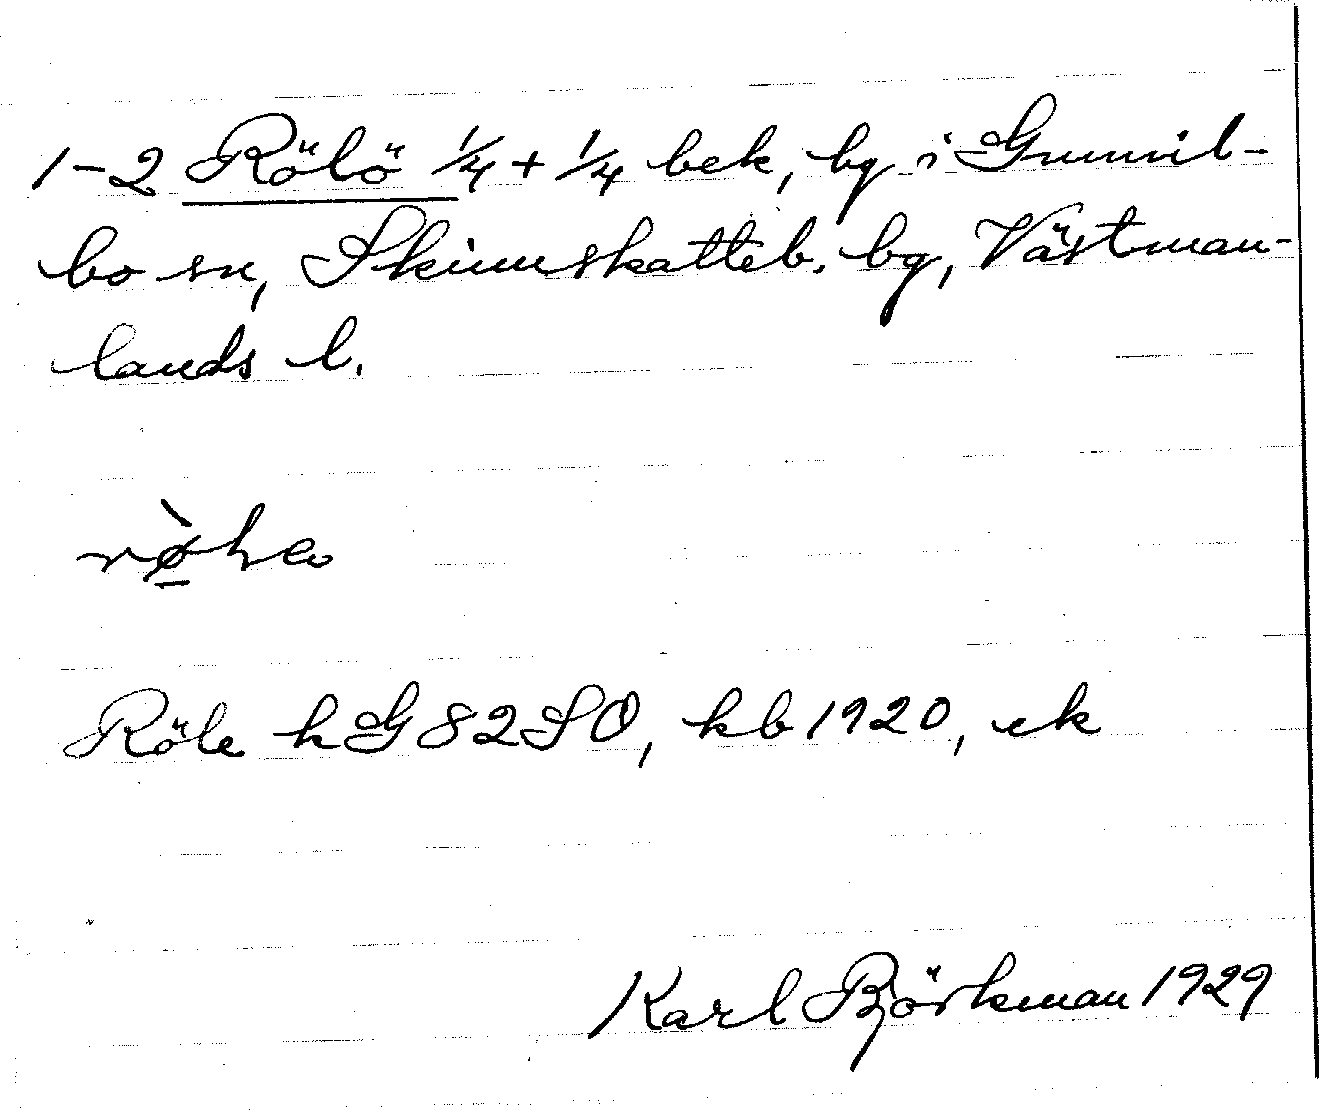 1-2 Rölö 1/4 + 1/4 bek, bg i Gunnil-
bo sn, Skinnskatteb. bg, Västman-
lands l.
Röle h G 82 SO, kb 1920, ek
Karl Björkman 1929